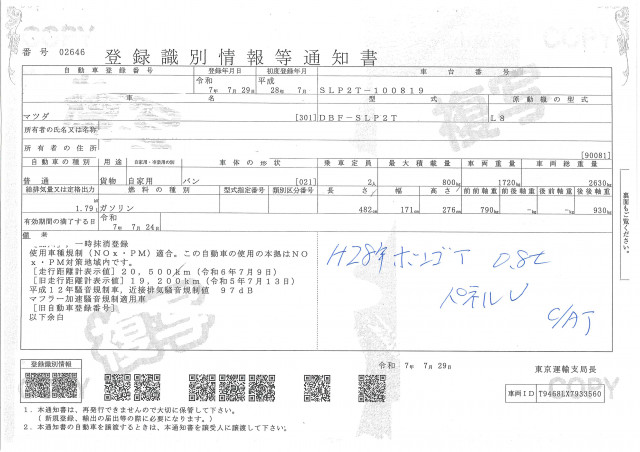 番号 02646 登録識別情報等通知書
自動車登録番号 登録年月日 初度登録年月 車台番号
令和 平成
7年 7月 29日 28年 7月 SLP2T-100819
車名 型式 原動機の型式
マツダ [301] DBF-SLP2T L8
所有者の氏名又は名称
所有者の住所
[90081]
自動車の種別 用途 自家用・事業用の別 車体の形状 乗車定員 最大積載量 車両重量 車両総重量
普通 貨物 自家用 バン [021] 2人 800kg 1720kg 2630kg
総排気量又は定格出力 燃料の種別 型式指定番号 類別区分番号 長さ 幅 高さ 前前軸重 前後軸重 後前軸重 後後軸重
1.79L ガソリン 482cm 171cm 276cm 790kg -kg -kg 930kg
有効期間の満了する日 令和
7年 7月 24日
備考
一時抹消登録
使用車種規制（NOx・PM）適合。この自動車の使用の本拠はNO
x・PM対策地域内です。
[走行距離計表示値] 20,500km（令和6年7月9日）
[旧走行距離計表示値] 19,200km（令和5年7月13日）
平成12年騒音規制車，近接排気騒音規制値 97dB
マフラー加速騒音規制適用車
[旧自動車登録番号]
以下余白
H28年 ボンゴT 0.8t
パネルV
C/AT
裏面もご覧ください。
複写
複写
COPY
令和 7年 7月 29日
東京運輸支局長
登録識別情報
車両ID T9468LX7933560
COPY
1．本通知書は、再発行できませんので大切に保管して下さい。
（新規登録、輸出の届出等の際に必要になります。）
2．本通知書の自動車を譲渡するときは、本通知書を譲受人に譲渡して下さい。